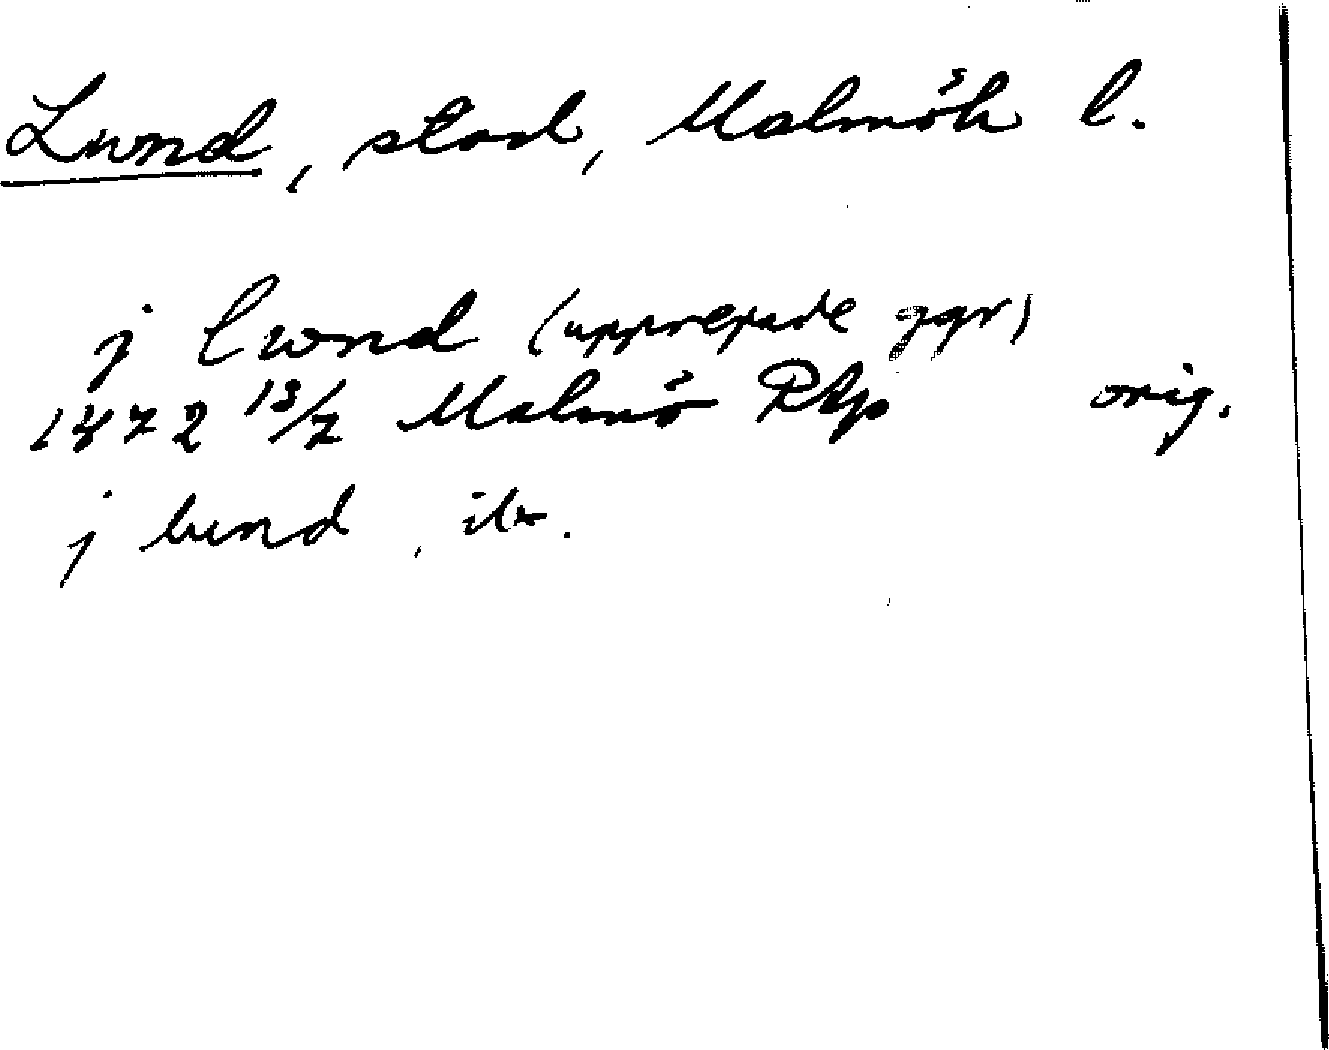 Lund, stad, Malmöh l.
j lwnd (upprepade ggr)
1472 13/7 Malmö Rhp orig.
j lund, ib.